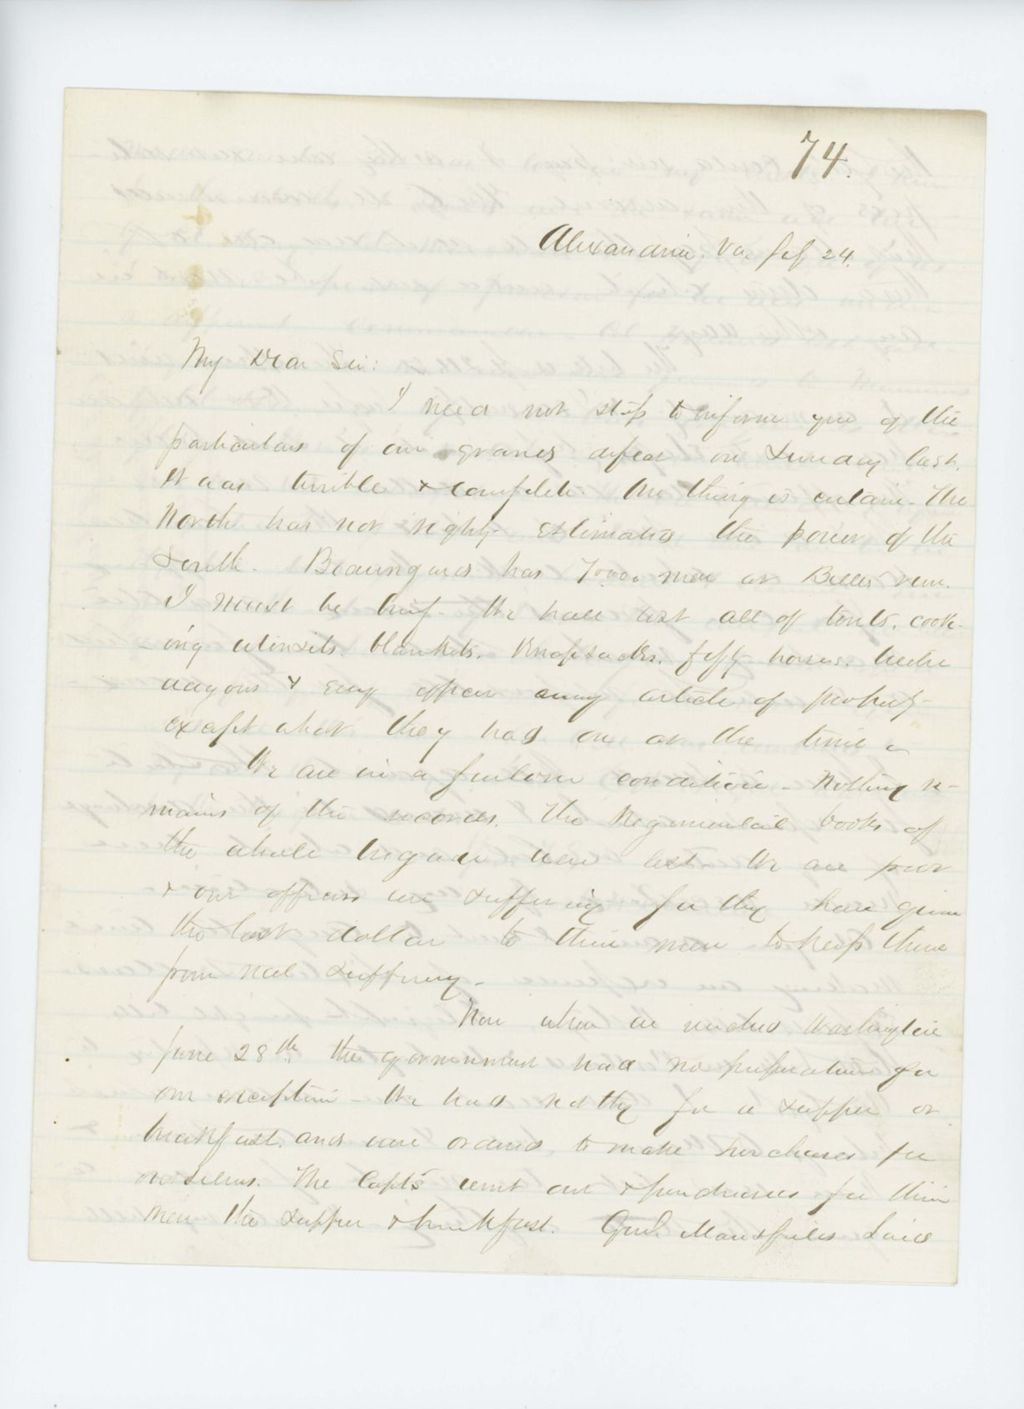 74.
Alexandria, Va. July 24.
My Dear Sir:
I need not stop to inform you of the
particulars of our defeat on Sunday last.
It was terrible & complete. One thing is certain. The
North has not rightly estimated the power of the
South. Beauregard has 70000 men at
I must be brief. We have lost all of tents, cook-
ing utensils, blankets, knapsacks, fifty horses, twelve
wagons & every officer every article of property
except what they had on at the time
We are in a forlorn condition - Nothing re-
mains of the records. The Regimental books of
the whole brigade were lost. We are poor
& our officers are suffering for they have given
the last dollar to their men to keep them
from real suffering -
Now when we reached Washington
June 28th the government had no preparation for
our reception - We had nothg for a supper or
breakfast, and were ordered to make purchases for
ourselves. The Capts went out & purchased for their
men the supper & breakfast. Genl. Mansfield said